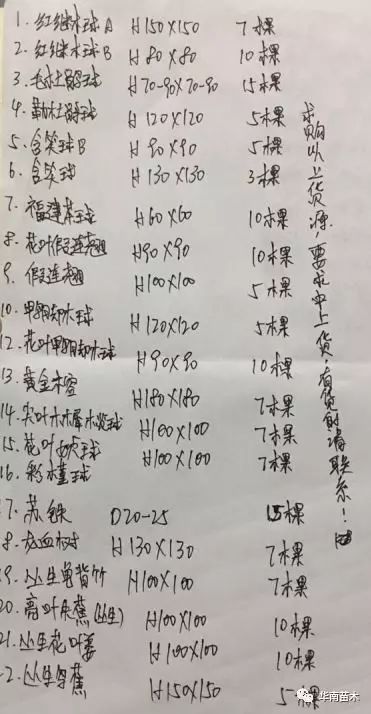 1. 红继木球A H150X150 7棵
2. 红继木球B H80X80 10棵
3. 毛杜鹃球 H70-90X70-90 15棵
4. 勒杜鹃球 H120X120 5棵
5. 含笑球B H90X90 5棵
6. 含笑球 H130X130 3棵
7. 福建茶球 H60X60 10棵
8. 花叶假连翘 H90X90 10棵
9. 假连翘 H100X100 5棵
10. 鸭脚木球 H120X120 5棵
12. 花叶鸭脚木球 H90X90 10棵
13. 黄金香 H180X180 7棵
14. 尖叶木犀榄球 H100X100 7棵
15. 花叶球 H100X100 7棵
16. 彩槿球
17. 苏铁 D20-25 15棵
8. 龙血树 H130X130 7棵
9. 丛生龟背竹 H100X100 7棵
20. 朱蕉(丛生) H100X100 10棵
21. 丛生花叶姜 H100X100 10棵
2. 丛生旱蕉 H150X150 5棵
求购以上货源,要求中上货,有货的请联系!
华南苗木